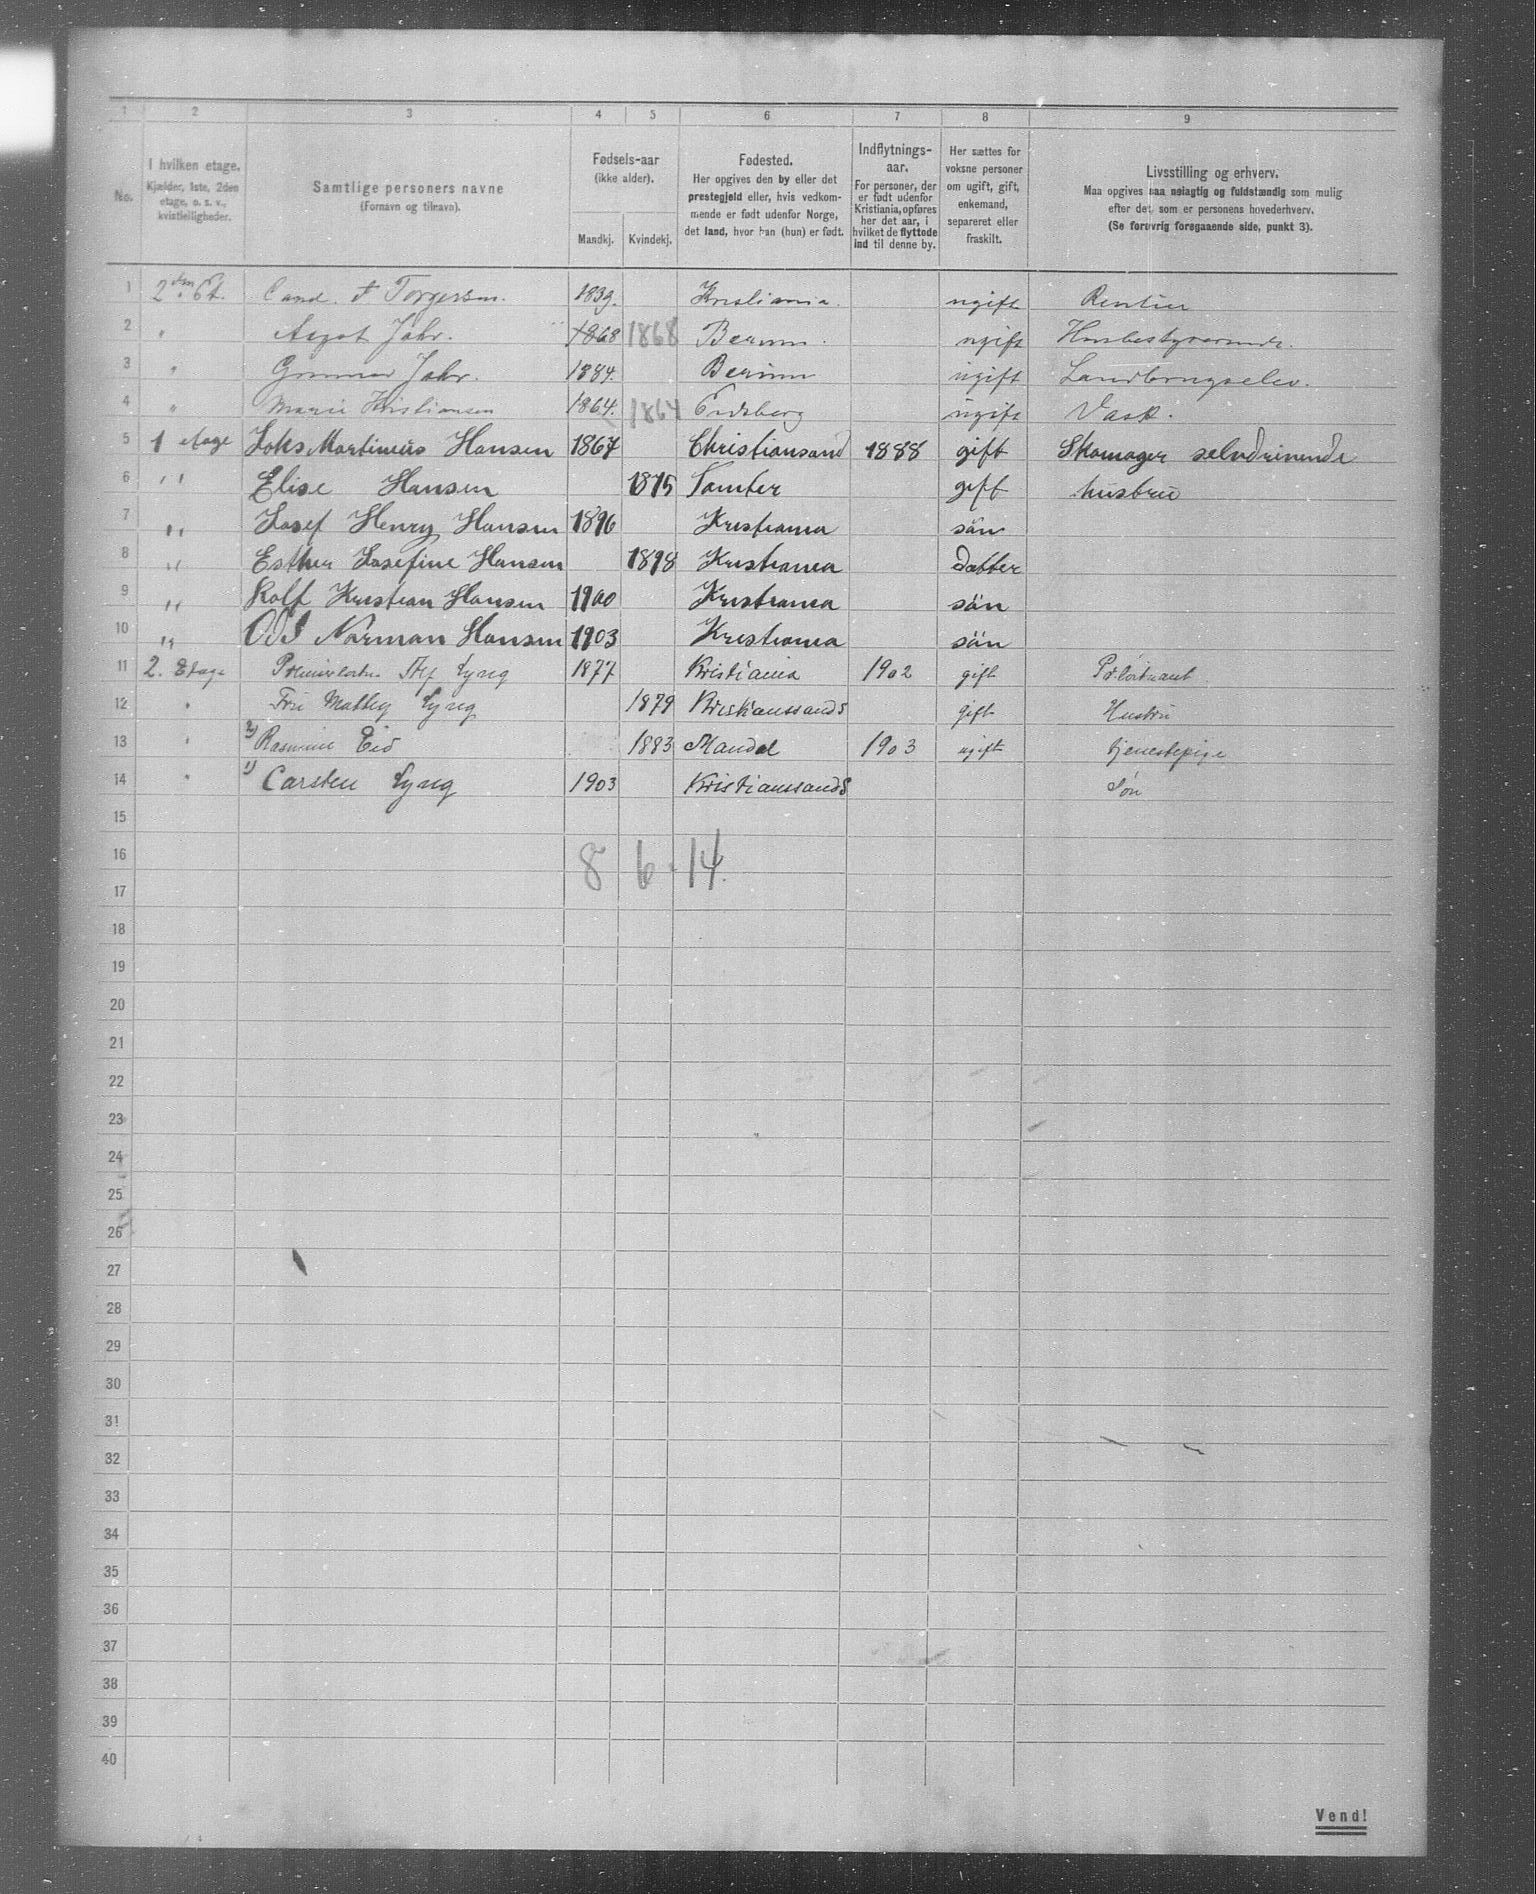 1 2 3 4 5 6 7 8 9
No.
I hvilken etage.
Kjælder, 1ste, 2den
etage, o. s. v.,
kvistleiligheder.
Samtlige personers navne
(Fornavn og tilnavn).
Fødsels-aar
(ikke alder).
Mandkj. Kvindekj.
Fødested.
Her opgives den by eller det
prestegjeld eller, hvis vedkom-
mende er født udenfor Norge,
det land, hvor han (hun) er født.
Indflytnings-
aar.
For personer, der
er født udenfor
Kristiania, opføres
her det aar, i
hvilket de flyttede
ind til denne by.
Her sættes for
voksne personer
om ugift, gift,
enkemand,
separeret eller
fraskilt.
Livsstilling og erhverv.
Maa opgives saa nøiagtig og fuldstændig som mulig
efter det, som er personens hovederhverv.
(Se forøvrig foregaaende side, punkt 3).
1 2den Et. Cand. F Torgersen. 1839. Kristiania. ugift Rentier
2 " Aagot Jahr. 1868 1868 Berum. ugift Husbestyrerinde.
3 " Gunnar Jahr. 1884. Berum ugift Landbrugselev.
4 " Marie Kristiansen 1864. 1864 Eidsberg ugift Vask.
5 1 etage Johs Martinius Hansen 1867 Christiansand 1888 gift Skomager selvdrivende
6 " Elise Hansen 1875 Tomter gift hustru
7 " Josef Henry Hansen 1896 Kristiania sön
8 " Esther Josefine Hansen 1898 Kristiania Datter
9 " Rolf Kristian Hansen 1900 Kristiania sön
10 " Odd Norman Hansen 1903 Kristiania sön
11 2. Etage Premierløitn. Alf Lyng 1877 Kristiania 1902 gift Pr.löitnant
12 " Fru Mathey Lyng 1879 Kristianssands gift Hustru
13 " 2) Rasmine Eid 1883 Mandal 1903 ugift tjenestepige
14 " 1) Carsten Lyng 1903 Kristianssands Søn
15
16
8 6 . 14.
17
18
19
20
21
22
23
24
25
26
27
28
29
30
31
32
33
34
35
36
37
38
39
40
Vend!